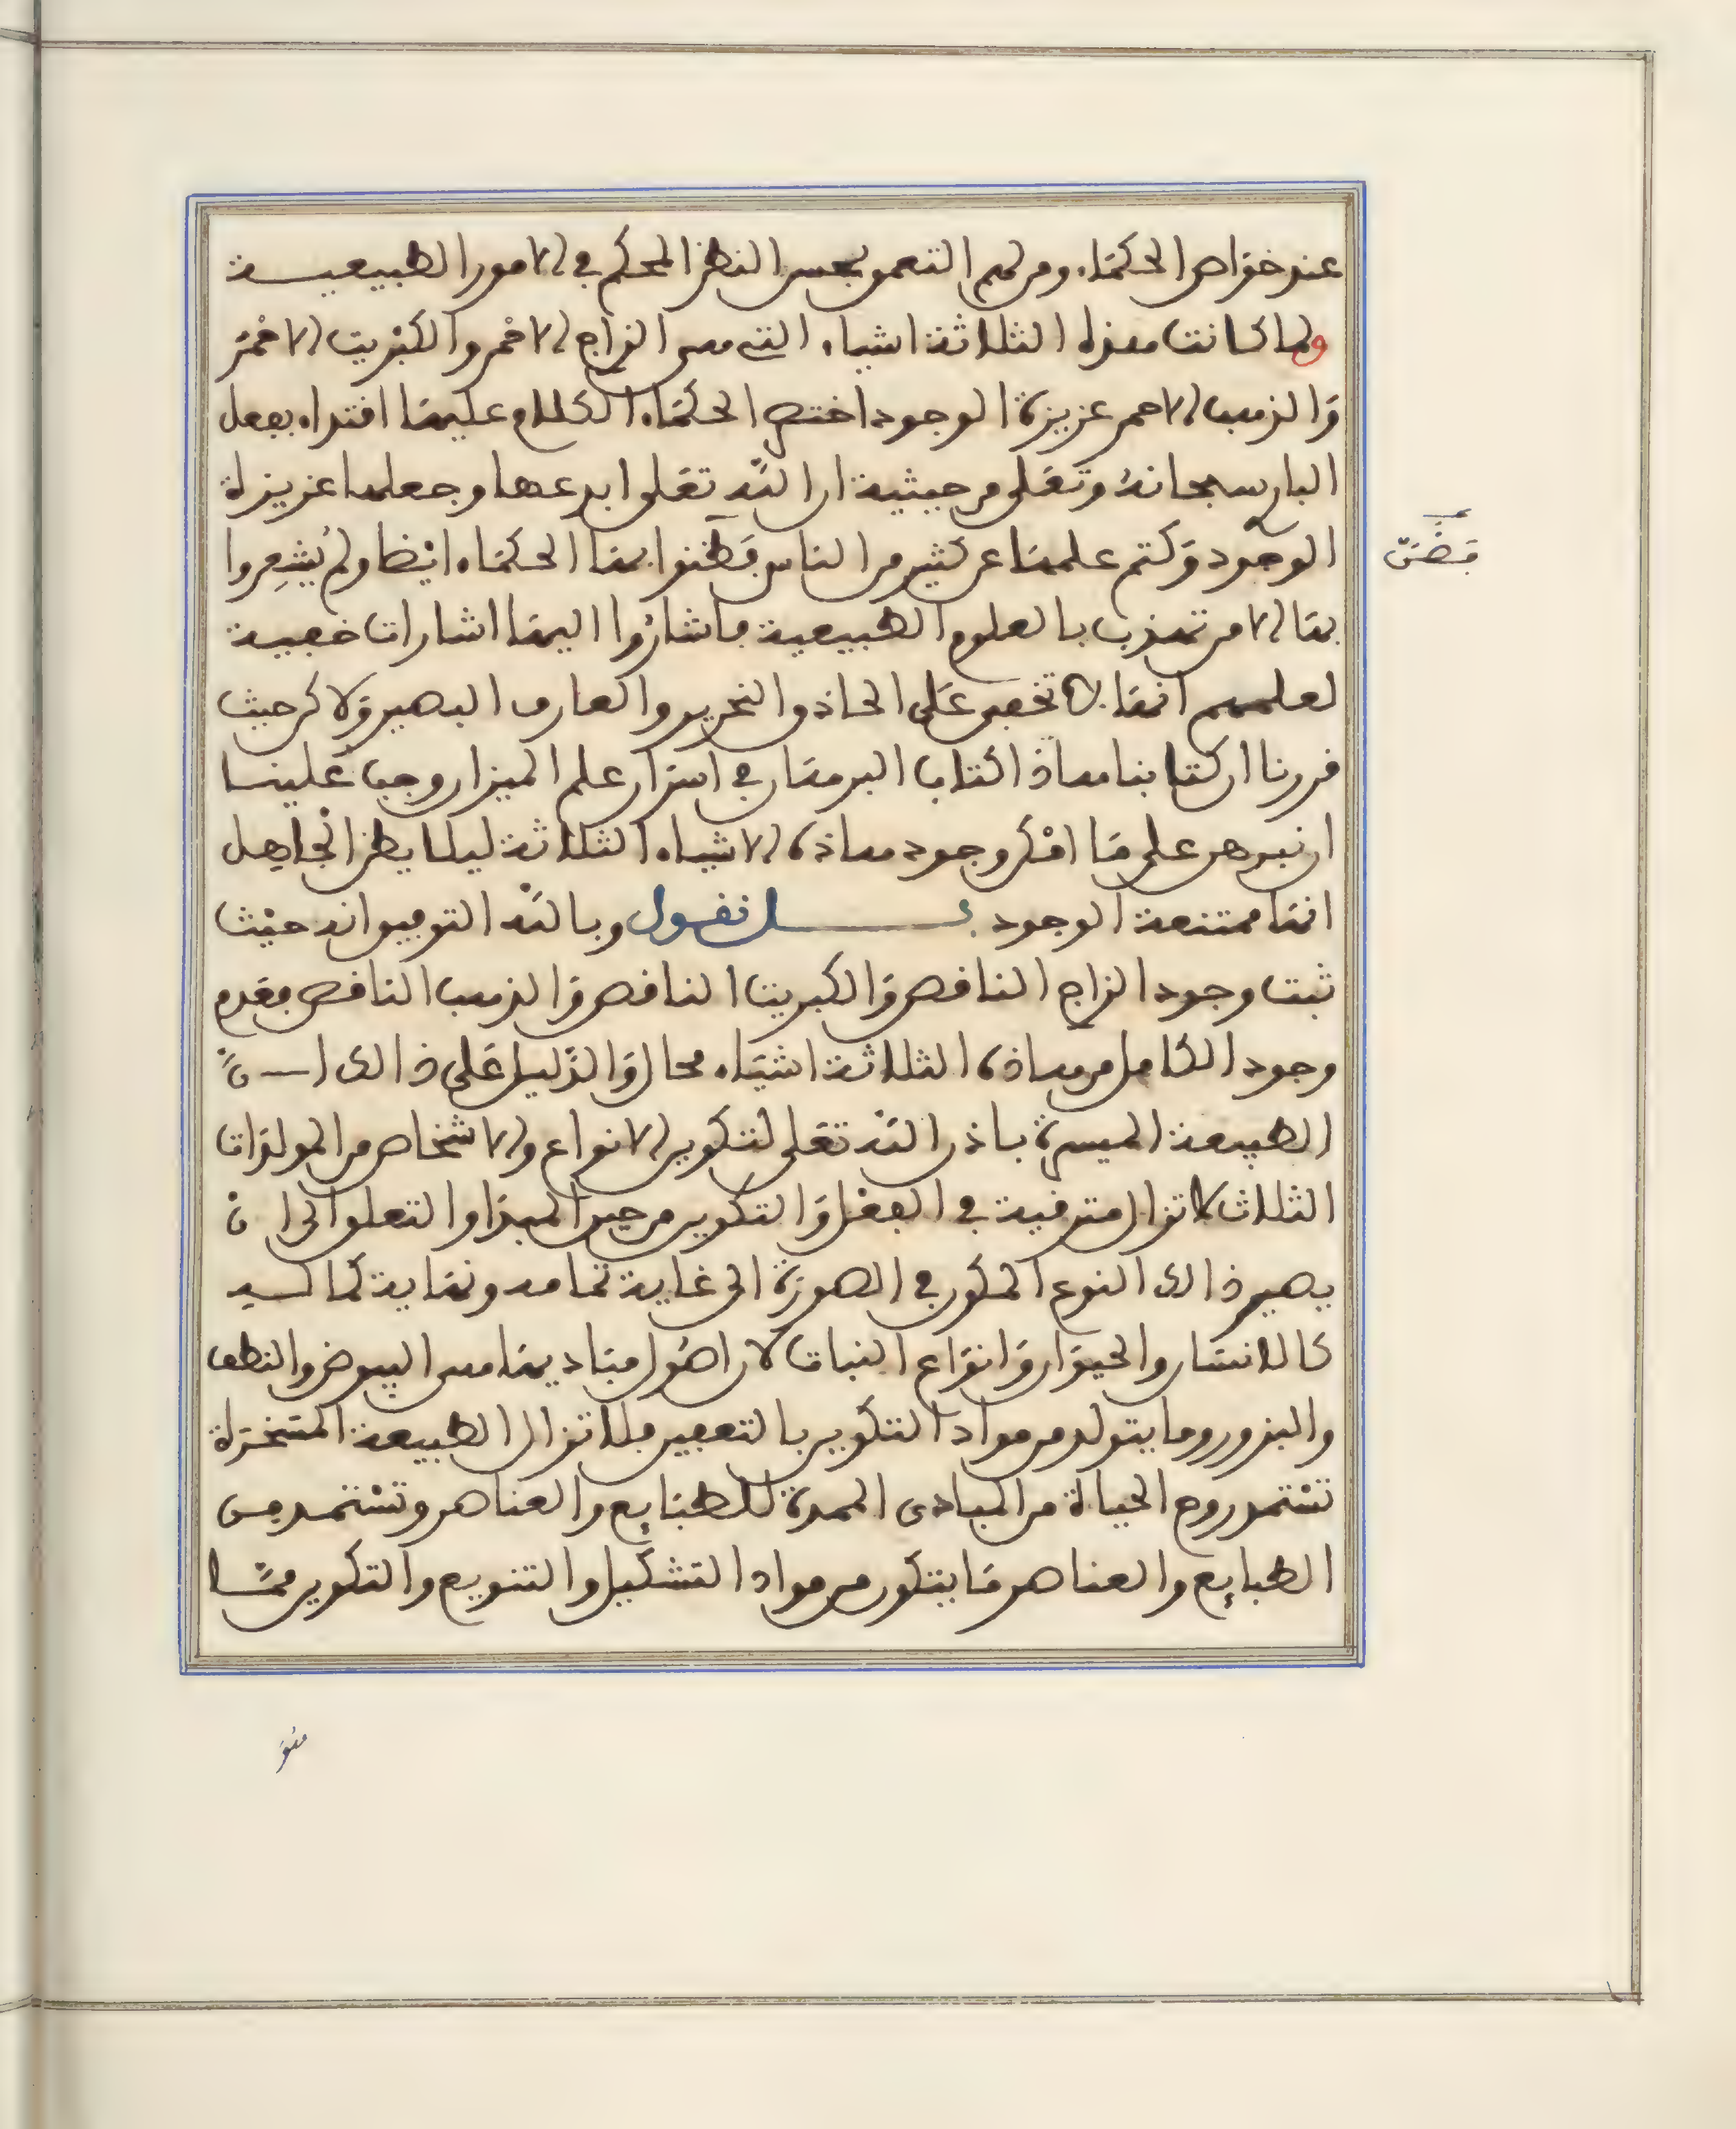 عند خواص الحكماء ومن لهم التعمق بحسن النظر المحكم في الامور الطبيعية
ولما كانت هذه الثلاثة اشياء التي هي الزاج الاحمر والكبريت الاحمر
والذهب الاحمر عزيزة الوجود اختصر الحكماء الكلام عليها اقتداء بفعل
البار سبحانه وتعلى من حيثية ان الله تعلى ابدعها وجعلها عزيزة
الوجود وكتم علمها عن كثير من الناس فظنوا بها الحكماء ايضا ولم يشعروا
بها الا من تهذب بالعلوم الطبيعية فاشاروا اليها اشارات خفية
لعلمهم انها لا تخفى على الحاذق النحرير والعارف البصير ولاكن حيث
قررنا ان كتابنا هاذا كتاب البرهان في اسرار علم الميزان وجب علينا
ان نبرهن على ما امكن وجود هاذه الاشياء الثلاثة ليلا يظن الجاهل
انها ممتنعة الوجود فصل نقول وبالله التوفيق انه حيث
ثبت وجود الزاج الناقص والكبريت الناقص والذهب الناقص فعدم
وجود الكامل من هاذه الثلاثة اشياء محال والدليل على ذالك ان
الطبيعة الميسرة باذن الله تعلى لتكوين الانواع والاشخاص من المولدات
الثلاث لا تزال مترقية في الفعل والتكوين من حين المبدا والتعلق الى ان
يصير ذالك النوع المكون في الصورة الى غاية تمامه ونهاية كماله
كالانسان والحيوان وانواع النبات لان اصول مباديها من البيوض والنطف
والبزور وما يتولد من مواد التكوين بالتعفين فلا تزال الطبيعة المسخرة
تستمد روح الحياة من المبادى الممدة للطبايع والعناصر وتستمد من
الطبايع والعناصر ما يتكون من مواد التشكيل والتنويع والتكوين مما
فضن
هو